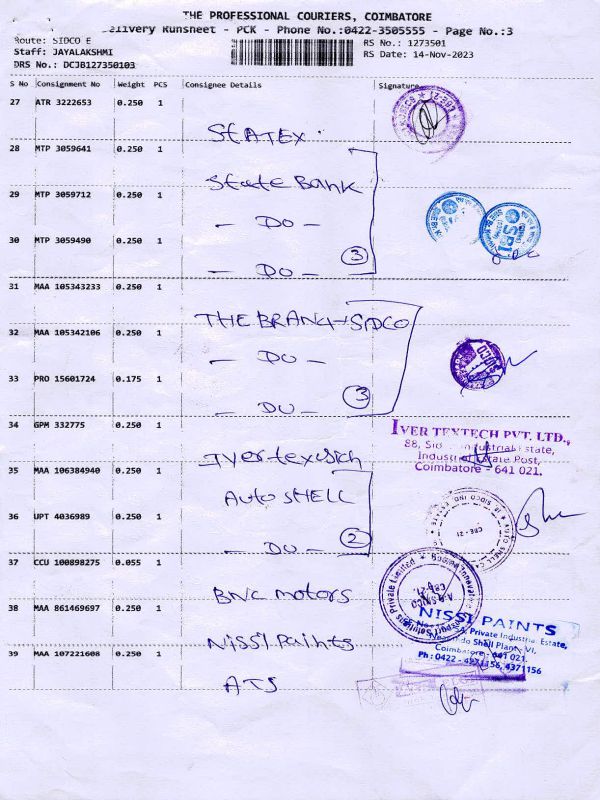 THE PROFESSIONAL COURIERS, COIMBATORE
Delivery Runsheet - PCK - Phone No.:0422-3505555 - Page No.:3
Route: SIDCO E
Staff: JAYALAKSHMI
DRS No.: DCJB127350103
RS No.: 1273501
RS Date: 14-Nov-2023
S No Consignment No Weight PCS Consignee Details Signature
27 ATR 3222653 0.250 1
STATEX
28 MTP 3059641 0.250 1
State Bank
29 MTP 3059712 0.250 1
- DO -
30 MTP 3059490 0.250 1
- DO - 3
31 MAA 105343233 0.250 1
THE BRANCH SIDCO
32 MAA 105342106 0.250 1
- DO -
33 PRO 15601724 0.175 1
- DO - 3
34 GPM 332775 0.250 1
35 MAA 106384940 0.250 1
Auto SHELL
36 UPT 4036989 0.250 1
- DO - 2
37 CCU 100898275 0.055 1
BNC motors
38 MAA 861469697 0.250 1
Nissi Paints
39 MAA 107221608 0.250 1
ATS
SBI
SIDCO
IVER TEXTECH PVT. LTD.,
88, Industrial Estate,
Industrial Estate Post,
Coimbatore - 641 021.
CBE - 21
NISSI PAINTS
Private Industrial Estate,
Shell Plant, VI,
Coimbatore - 641 021.
Ph : 0422 - 4971156, 4371156